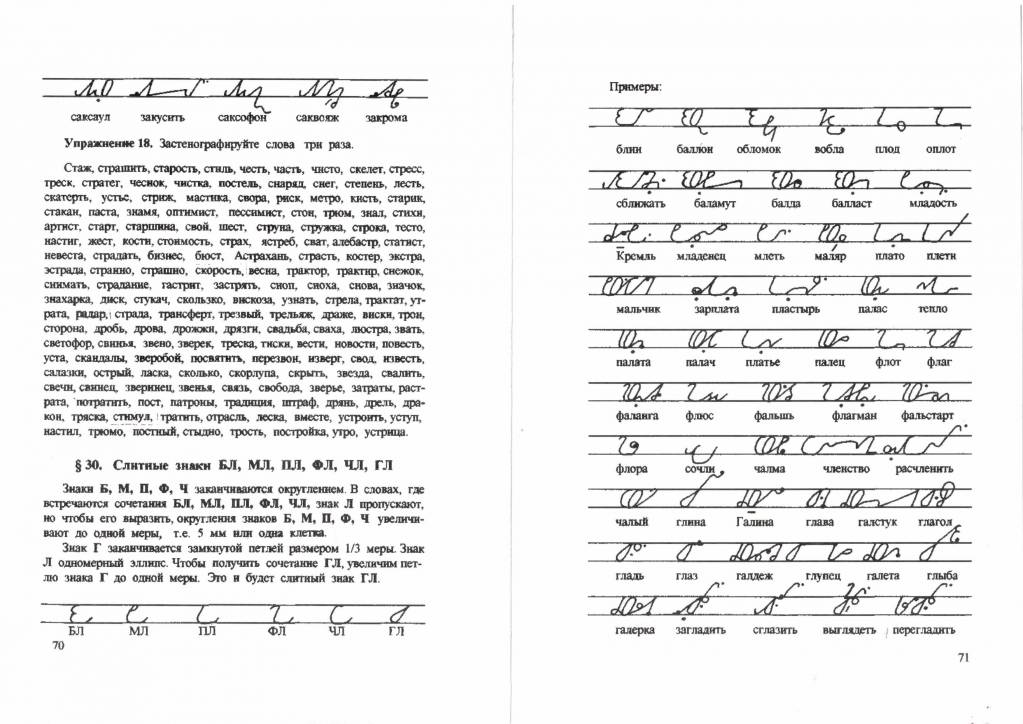 саксаул закусить саксофон саквояж закрома
Упражнение 18. Застенографируйте слова три раза.
Стаж, страшить, старость, стиль, честь, часть, чисто, скелет, стресс,
треск, стратег, чеснок, чистка, постель, снаряд, снег, степень, лесть,
скатерть, устье, стриж, мастика, свора, риск, метро, кисть, старик,
стакан, паста, знамя, оптимист, пессимист, стон, трюм, знал, стихи,
артист, старт, старшина, свой, шест, струна, стружка, строка, тесто,
настиг, жест, кости, стоимость, страх, ястреб, сват, алебастр, статист,
невеста, страдать, бизнес, бюст, Астрахань, страсть, костер, экстра,
эстрада, странно, страшно, скорость, весна, трактор, трактир, снежок,
снимать, страдание, гастрит, застрять, сноп, сноха, снова, значок,
знахарка, диск, стукач, скользко, вискоза, узнать, стрела, трактат, ут-
рата, радар, страда, трансферт, трезвый, трельяж, драже, виски, трон,
сторона, дробь, дрова, дрожжи, дрязги, свадьба, сваха, люстра, звать,
светофор, свинья, звено, зверек, треска, тиски, вести, новости, повесть,
уста, скандалы, зверобой, посвятить, перезвон, изверг, свод, известь,
салазки, острый, ласка, сколько, скорлупа, скрыть, звезда, свалить,
свечи, свинец, зверинец, звенья, связь, свобода, зверье, затраты, раст-
рата, потратить, пост, патроны, традиция, штраф, дрянь, дрель, дра-
кон, тряска, стимул, тратить, отрасль, леска, вместе, устроить, уступ,
настил, трюмо, постный, стыдно, трость, постройка, утро, устрица.
§ 30. Слитные знаки БЛ, МЛ, ПЛ, ФЛ, ЧЛ, ГЛ
Знаки Б, М, П, Ф, Ч заканчиваются округлением. В словах, где
встречаются сочетания БЛ, МЛ, ПЛ, ФЛ, ЧЛ, знак Л пропускают,
но чтобы его выразить, округления знаков Б, М, П, Ф, Ч увеличи-
вают до одной меры, т.е. 5 мм или одна клетка.
Знак Г заканчивается замкнутой петлей размером 1/3 меры. Знак
Л одномерный эллипс. Чтобы получить сочетание ГЛ, увеличим пет-
лю знака Г до одной меры. Это и будет слитный знак ГЛ.
БЛ МЛ ПЛ ФЛ ЧЛ ГЛ
70
Примеры:
блин баллон обломок вобла плод оплот
сближать баламут балда балласт младость
Кремль младенец млеть маляр плато плети
мальчик зарплата пластырь палас тепло
палата палач платье палец флот флаг
фаланга флюс фальшь флагман фальстарт
флора сочли чалма членство расчленить
чалый глина Галина глава галстук глагол
гладь глаз галдеж глупец галета глыба
галерка загладить сглазить выглядеть перегладить
71